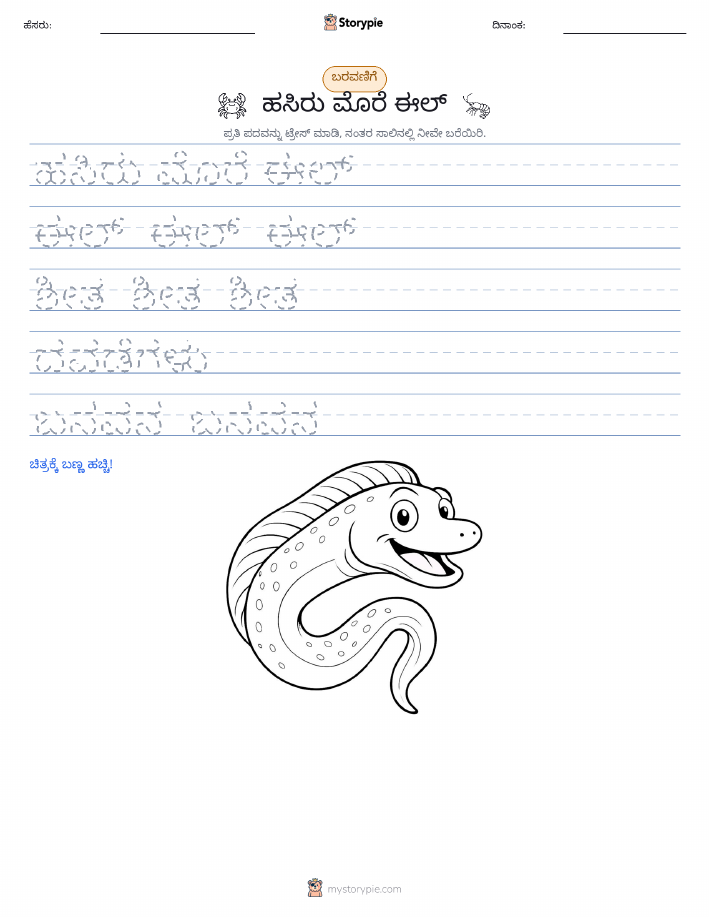 ಹೆಸರು: Storypie ದಿನಾಂಕ:
ಬರವಣಿಗೆ
ಹಸಿರು ಮೊರೆ ಈಲ್
ಪ್ರತಿ ಪದವನ್ನು ಟ್ರೇಸ್ ಮಾಡಿ, ನಂತರ ಸಾಲಿನಲ್ಲಿ ನೀವೇ ಬರೆಯಿರಿ.
ಹಸಿರು ಮೊರೆ ಈಲ್
ಈಲ್ ಈಲ್ ಈಲ್
ಶೀತ ಶೀತ ಶೀತ
ಚಿತ್ರಕ್ಕೆ ಬಣ್ಣ ಹಚ್ಚಿ!
mystorypie.com